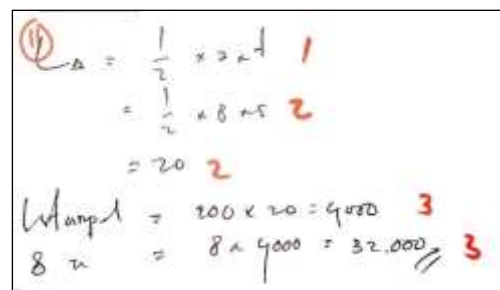 11
L△ = 1/2 × a × t 1
= 1/2 × 8 × 5 2
= 20 2
= 200 × 20 = 4000 3
8 = 8 × 4000 = 32.000 3